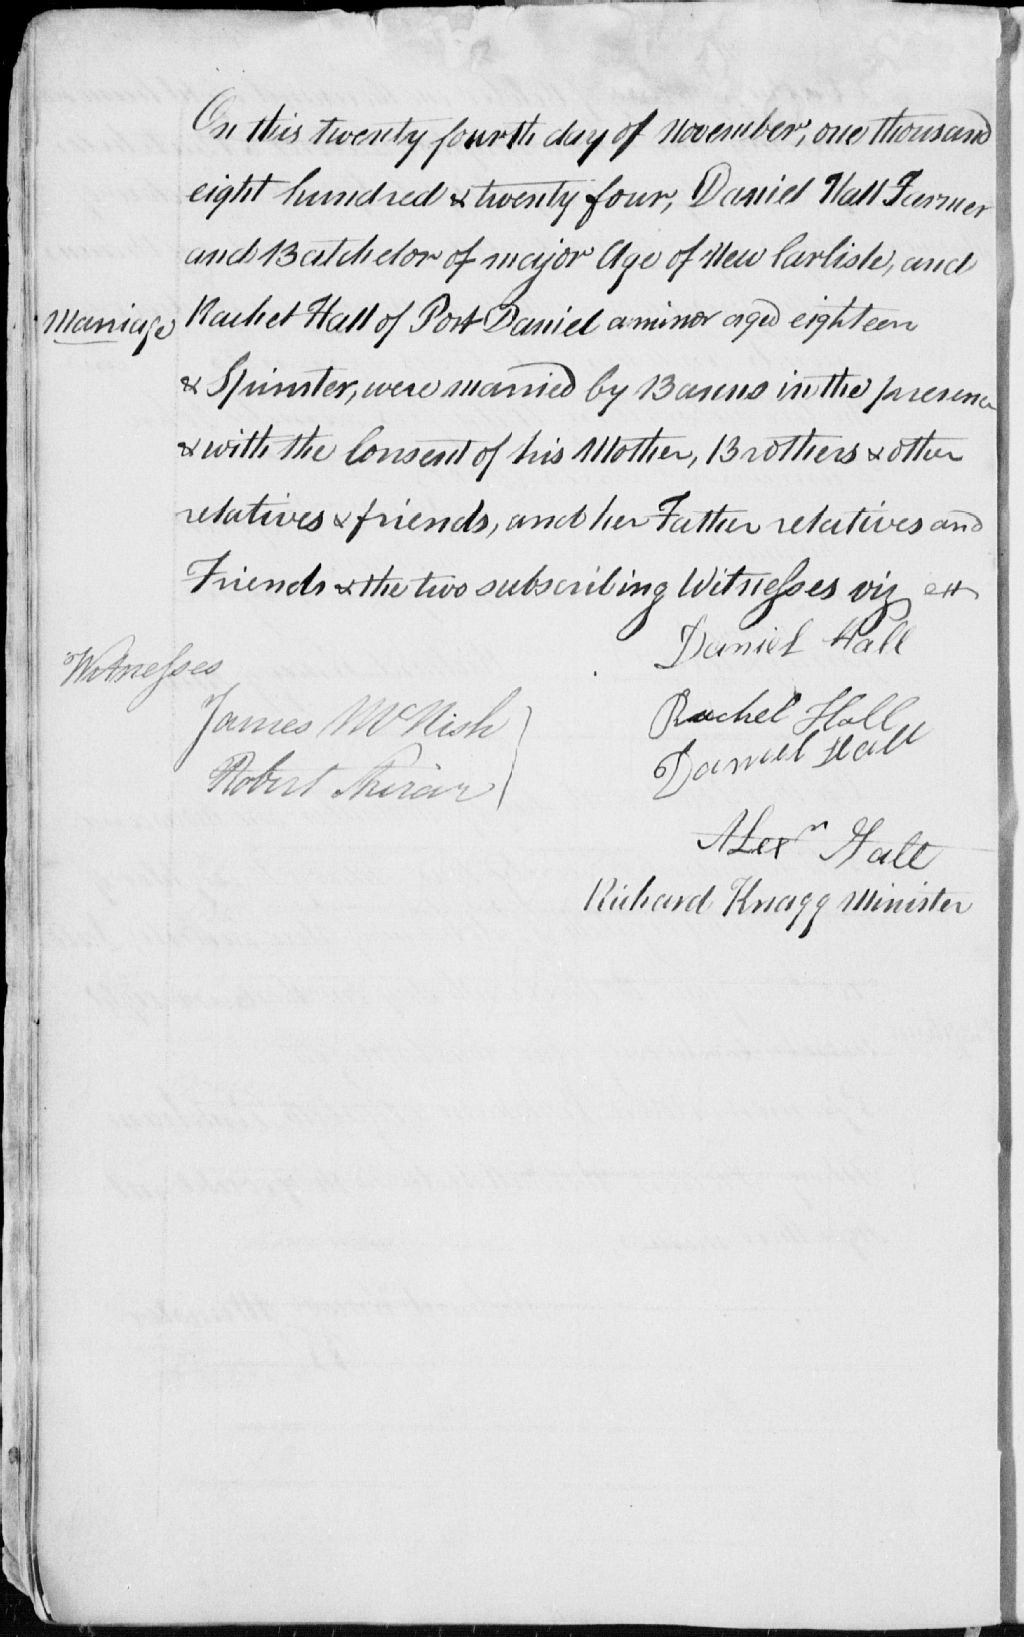 On this twenty fourth day of November, one thousand
eight hundred & twenty four, Daniel Hall Farmer
and Batchelor of major Age of New Carlisle, and
Marriage
Rachel Hall of Port Daniel a minor aged eighteen
& Spinster, were married by Banns in the presence
& with the Consent of his Mother, Brothers & other
relatives & friends, and her Father relatives and
Friends & the two subscribing Witnesses viz
Daniel Hall
Witnesses
James McNish
Rachel Hall
Daniel Hall
Robert
Alexr Hall
Richard Knagg Minister